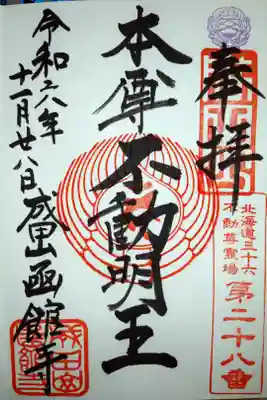 奉拝
北海道三十六
不動尊霊場
第二十八番
本尊不動明王
令和六年
十一月廿八日 成田山函館寺